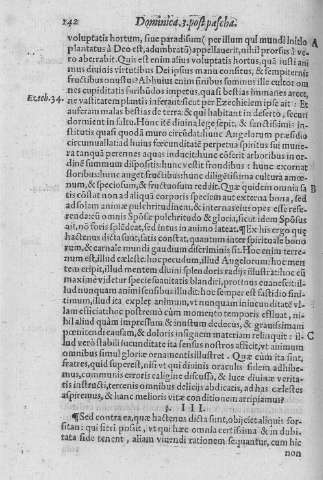 242 Dominica.3.post pascha.
voluptatis hortum, siue paradisum (per illum qui mundi initio A
plantatus à Deo est, adumbratū) appellauerit, nihil prorsus à ve-
ro aberrabit. Quis est enim alius voluptatis hortus, quā iusti ani
mus diuinis virtutibus Dei ipsius manu consitus, & sempiternis
fructibus onustus? Abhunc enim sordes somnes ille cultor om
nes cupiditatis suribùs impetus, quasi bestias immanes arcet,
Ezech.34. ne vastitatem plantis inferant: sicut per Ezechielem ipse ait: Et
auferam malas bestias de terra: & qui habitant in deserto, securi
dormient in saltu. Hunc ité diuina lege sepit, & sanctissimis in-
stitutis quasi quodā muro circūdat: hunc Angelorum præsidio
circumuallat: ad huius fœcunditatē perpetua spiritus sui munera
tanquā perennes aquas inducit: hunc cōserit arboribus in or-
dinē summum dispositis: hunc vestit frondibus: hunc exornat
floribus: hunc auget fructibus: hunc diligētissima cultura amœ-
num, & speciosum, & fructuosum reddit. Quæ quidem omnia sa B
tis cōstat non ad aliquā corporis speciem aut externa bona, sed
ad solam animæ pulchritudinem, & internas eius opes esse refe-
renda: cū omnis Spōsæ pulchritudo & gloria, sicut idem Spōsus
ait, nō foris splēdeat, sed intus in animo lateat. ¶Ex his ergo que
hactenus dicta sunt, satis constat, quantum inter spirituale bono
rum, & carnale mundi gaudium discriminis sit. Hoc enim terre-
num est, illud cælestе: hoc pecudum, illud Angelorum: hoc men
tem eripit, illud mentem diuini splendoris radijs illustrat: hoc cū
maximè videtur specie suauitatis blandiri, protinus euanescit: il-
lud nunquam animi sensibus illudit: hoc semper est fastidio fini-
timum, illud ita explet animum, vt nunquam iniucunditatē vl-
lam efficiat: hoc postremò cùm momento temporis effluat, ni-
hil aliud quàm impressum & inustum dedecus, & grauissimam
pœnitendi causam, & doloris insignem materiam relinquit: il- C
lud verò stabili iucunditate ita sensus nostros afficit, vt animum
omnibus simul gloriæ ornamentis illustret. Quæ cùm ita sint,
fratres, quid superest, nisi vt qui diuinis oraculis fidem adhibe-
mus, communis erroris caligine discussa, & luce diuinæ verita-
tis instructi, terrenis omnibus delicijs abdicatis, ad has cælestes
aspiremus, & hanc melioris vitæ conditionem arripiamus?
§. III.
¶Sed contra ea, quæ hactenus dicta sunt, obijciet aliquis for-
sitan: qui fieri possit, vt qui hæc omnia certissima & indubi-
tata fide tenent, aliam viuendi rationem sequantur, cum hic
non